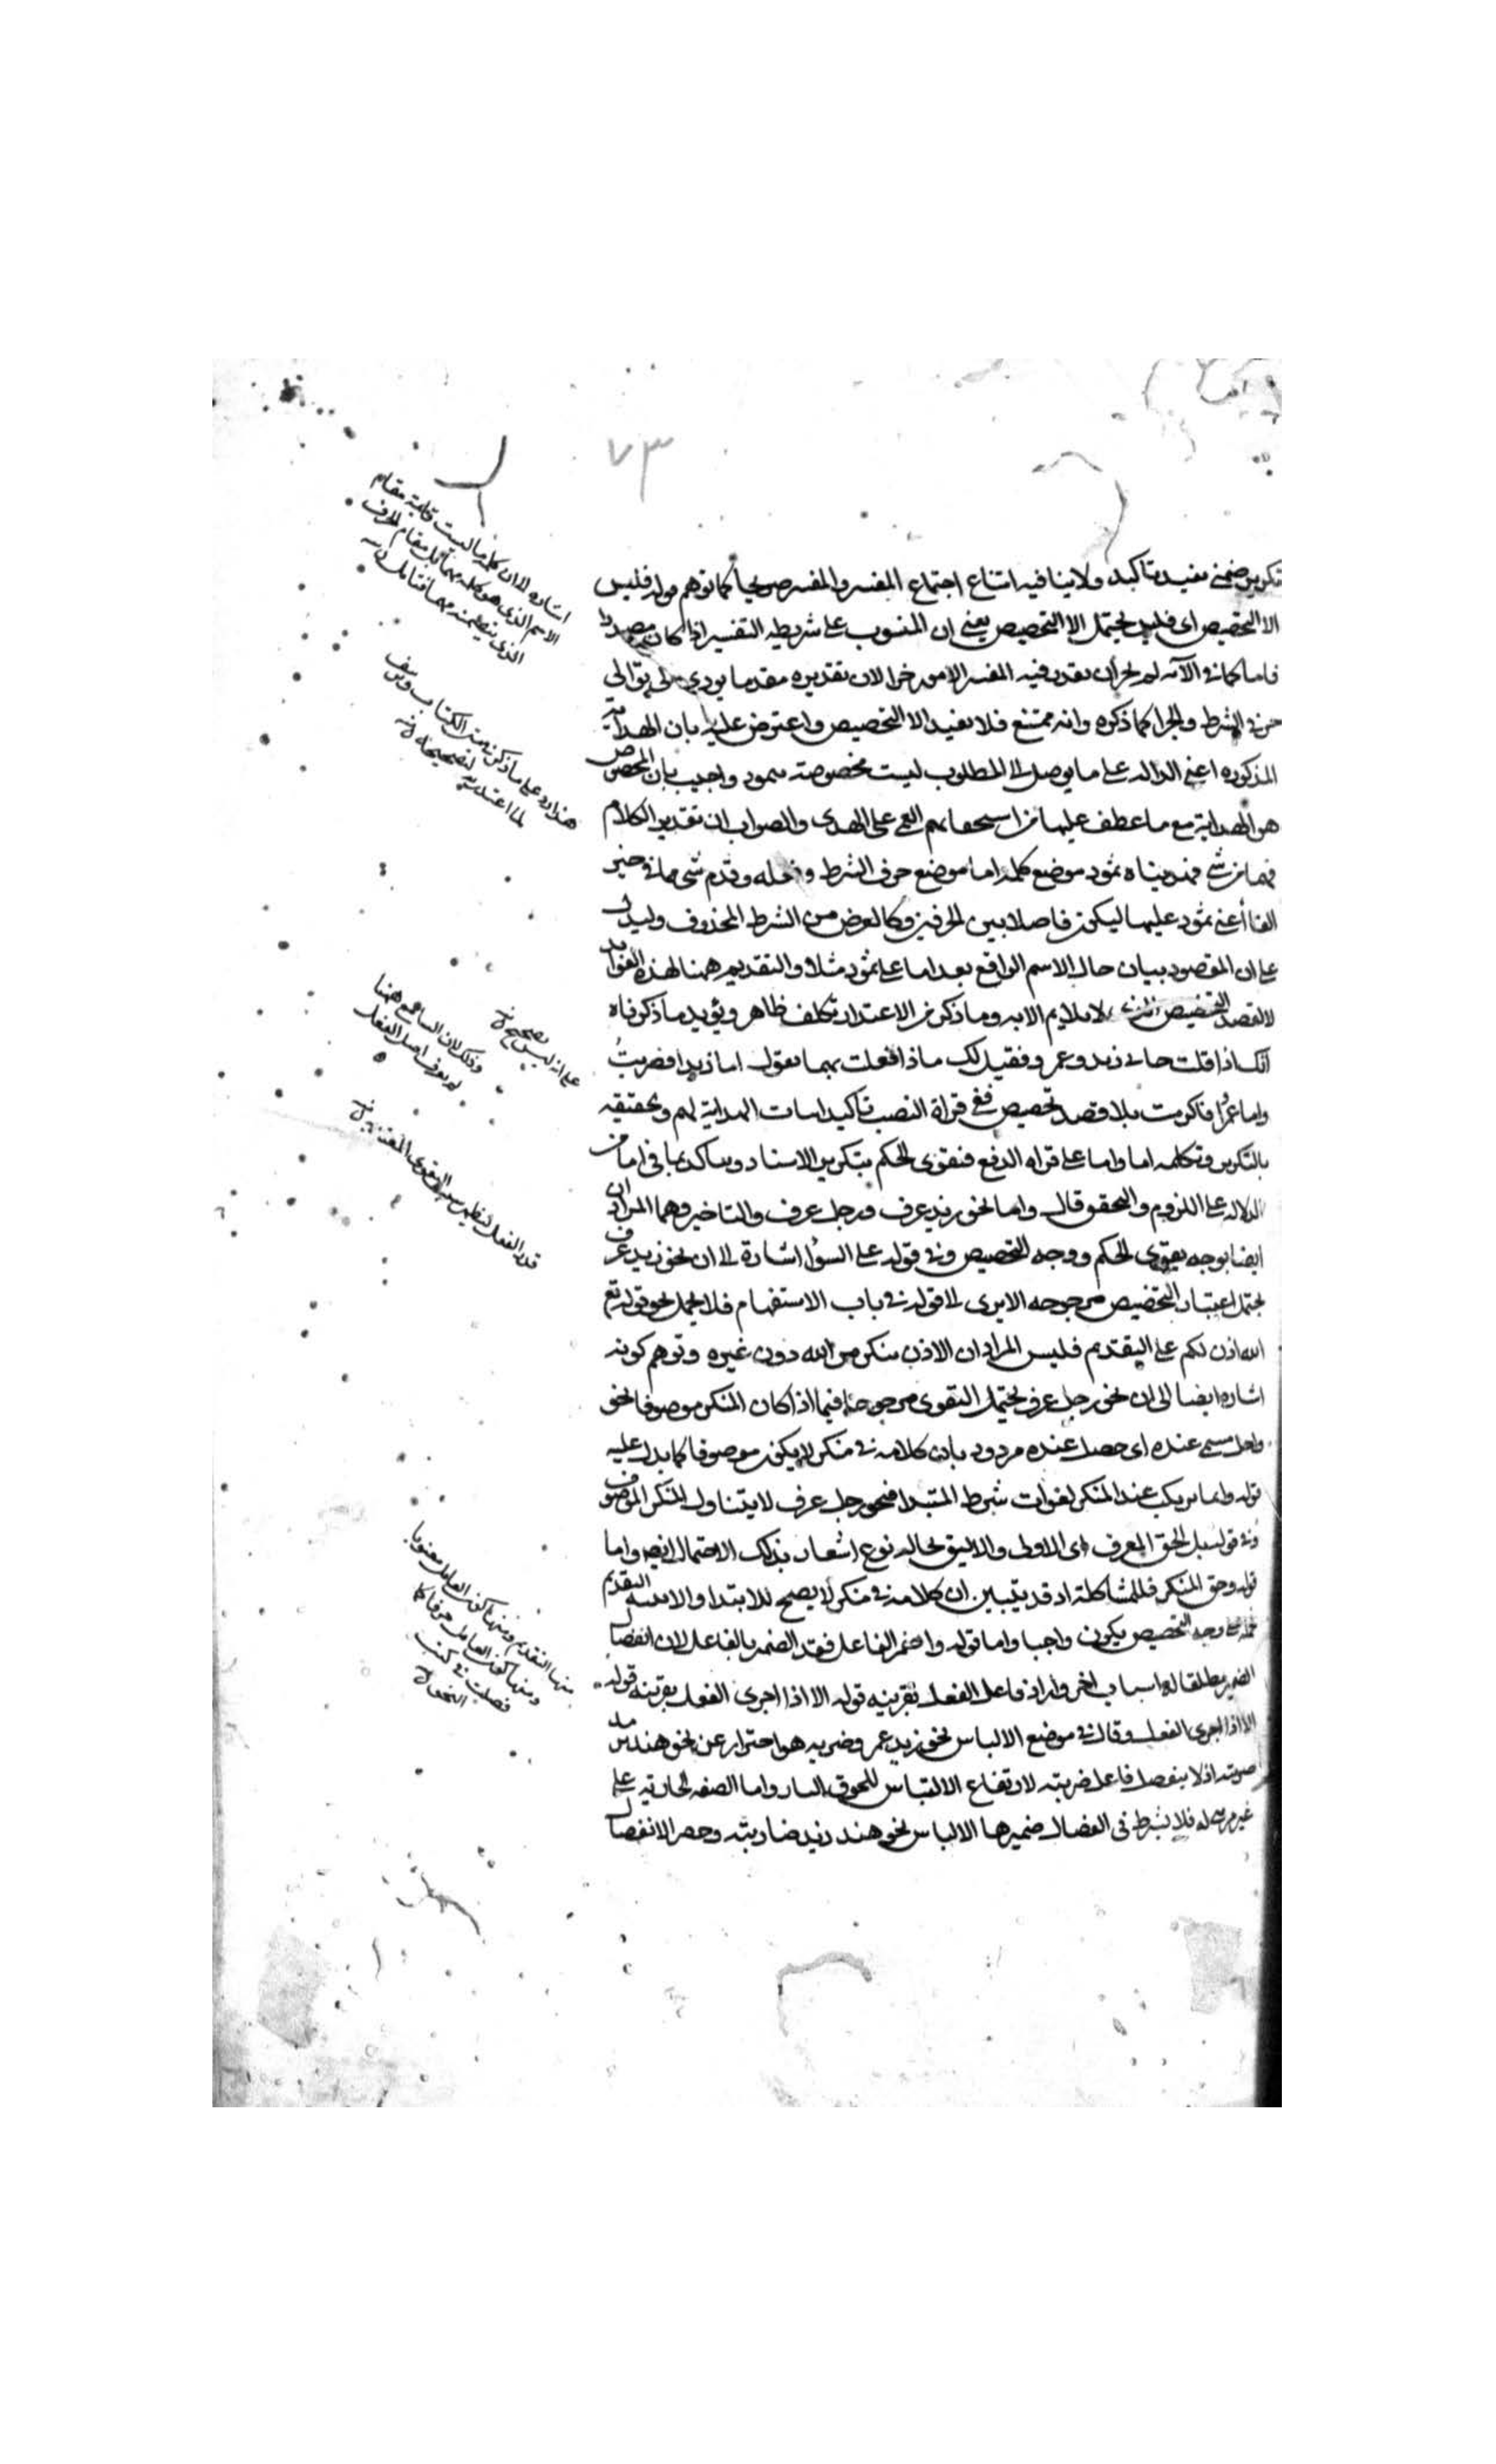 ٧٣
تكرير ضمني يفيد تاكيدا ولا ينافيه امتناع اجتماع المفسر والمفسر صريحا كما توهم قوله فليس
الا التخصيص اى فليس يحتمل الا التخصيص يعنى ان المنصوب على شريطة التفسير اذا كان مصدرا
باما كما فى الآية لم يجز ان يقدر فيه المفسر الا موخرا لان تقديره مقدما يودي الى توالى
حرفى الشرط والجزا كما ذكره وانه ممتنع فلا يفيد الا التخصيص واعترض عليه بان الهداية
المذكورة اعنى الدالة على ما يوصل الى المطلوب ليست مخصوصة بثمود واجيب بان المخصوص
هو الهداية مع ما عطف عليها من استحبابهم العمى على الهدى والصواب ان تقدير الكلام
مهما من شئ فهدينا ثمود موضع كلمة اما موضع حرف الشرط وفعله وقدم شئ مما فى حيز
الفا أعنى ثمود عليها ليكون فاصلا بين الحرفين وكالعوض من الشرط المحذوف وليدل
على ان المقصود بيان حال الاسم الواقع بعد اما على ثمود مثلا والتقديم ههنا لهذه الفوايد
لا لقصد التخصيص لا يلايم الاية وما ذكر من الاعتذار تكلف ظاهر ويؤيد ما ذكرناه
انك اذا قلت جانى زيد وعمرو فقيل لك ماذا فعلت بهما تقول اما زيدا فضربتُ
واما عمرا فاكرمت بلا قصد تخصيص ففى قراة النصب تاكيد اثبات الهداية لهم وتحقيقه
بالتكرير وبكلمة اما واما على قراه الرفع فتقوى الحكم بتكرير الاسناد ويتاكد بما فى اما من
الدلالة على اللزوم والتحقق قال واما نحو زيد عرف ورجل عرف والتاخير وهما المراد ان
ايضا بوجه يقوى الحكم ووجه التخصيص وفى قوله على السؤا اشارة الى ان نحو زيد عرف
يحتمل اعتبار التخصيص مرجوحه الا يرى الى قوله فى باب الاستفهام فلا يحمل نحو قوله تع
الله اذن لكم على التقديم فليس المراد ان الاذن ينكر من الله دون غيره وتوهم كونه
اشاره ايضا الى ان نحو رجل عرف يحتمل التقوى مرجوحا فيما اذا كان المنكر موصوفا نحو
واجل مسمى عنده اى حصل عنده مردود بان كلامه فى منكر لا يكون موصوفا كما يدل عليه
قوله وانما يرتكب عند المنكر لفوات شرط المبتدا فنحو رجل عرف لا يتناول المنكر الموصوف
وفى قوله بل الحق المعرف اى الاولى والاليق بحاله نوع اشعار بذلك الاحتمال ايض واما
قوله وحق المنكر فللمشاكلة اذ قد يتبين ان كلامه فى منكر لا يصح للابتدا والا التقديم
وجه التخصيص يكون واجبا واما قوله واضمر الفاعل فقد الضمير بالفاعل لان انفصال
الضمير مطلقا له اسباب اخر واراد فاعل الفعل بقرينة قوله الا اذا اجرى الفعل بقرينة قوله
الا اذا اجرى الفعل وقال فى موضع الالباس نحو زيد عمرو ضربه هو احترازا عن نحو هند زيد
ضربته اذ لا ينفصل فاعل ضربته لارتفاع الالتباس للحوق التا واما الصفه الجارية على
غير من له فلا يشترط فى انفصال ضميرها الالباس نحو هند زيد ضاربته وحصر الانفصال
اشاره الى ان كلمة ما ليست قايمة مقام
الاسم الذى هو كلمة مهما بل مقام الحرف
الذى يتضمنه مهما فتامل منه
هذا رد على ما ذكر فى الكتاب
لما اعتذر به لتصحيحه منه
على انه ليس بصحيح منه
وذلك لان السامع ههنا
لم يعرف اصل الفعل
منها التقديم ومنها كون العامل معنويا
ومنها كون العامل حرفا كما
فصلت فى كتب
النحو منه